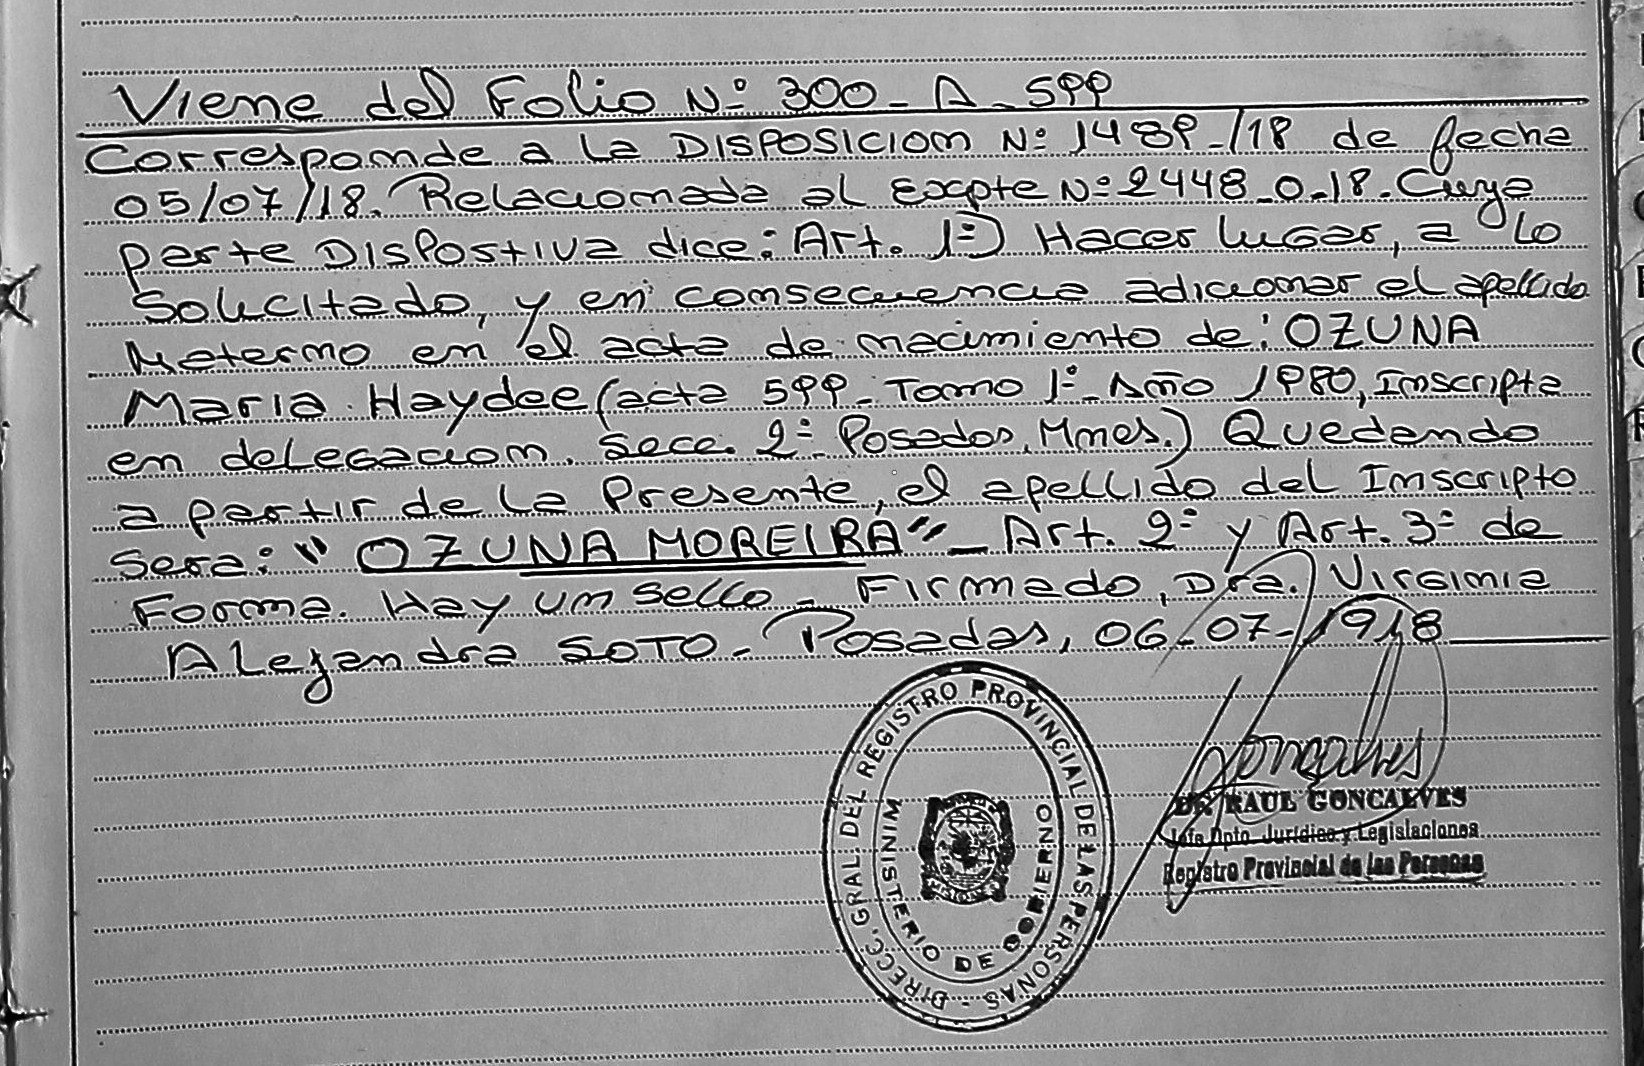 Viene del Folio Nº 300_A_599
Corresponde a la DISPOSICION Nº 1489_/18 de fecha
05/07/18. Relacionada al Expte Nº 2448_0_18. Cuya
parte DISPOSTIVA dice: Art. 1º) Hacer lugar, a lo
Solicitado, y en consecuencia adicionar el apellido
Materno en el acta de nacimiento de: OZUNA
Maria Haydee (acta 599_ Tomo 1º_ Año 1980, Inscripta
en delegacion. Secc. 2º_ Posadas, Mnes.) Quedando
a partir de la Presente, el apellido del Inscripto
Sera: "OZUNA MOREIRA"_ Art. 2º y Art. 3º de
Forma. Hay un sello_ Firmado, Dra. Virginia
Alejandra SOTO_ Posadas, 06_07_1918
DIRECC. GRAL. DEL REGISTRO PROVINCIAL DE LAS PERSONAS -
MINISTERIO DE GOBIERNO
Goncalves
DR. RAUL GONCALVES
Jefe Dpto. Jurídico y Legislaciones
Registro Provincial de las Personas